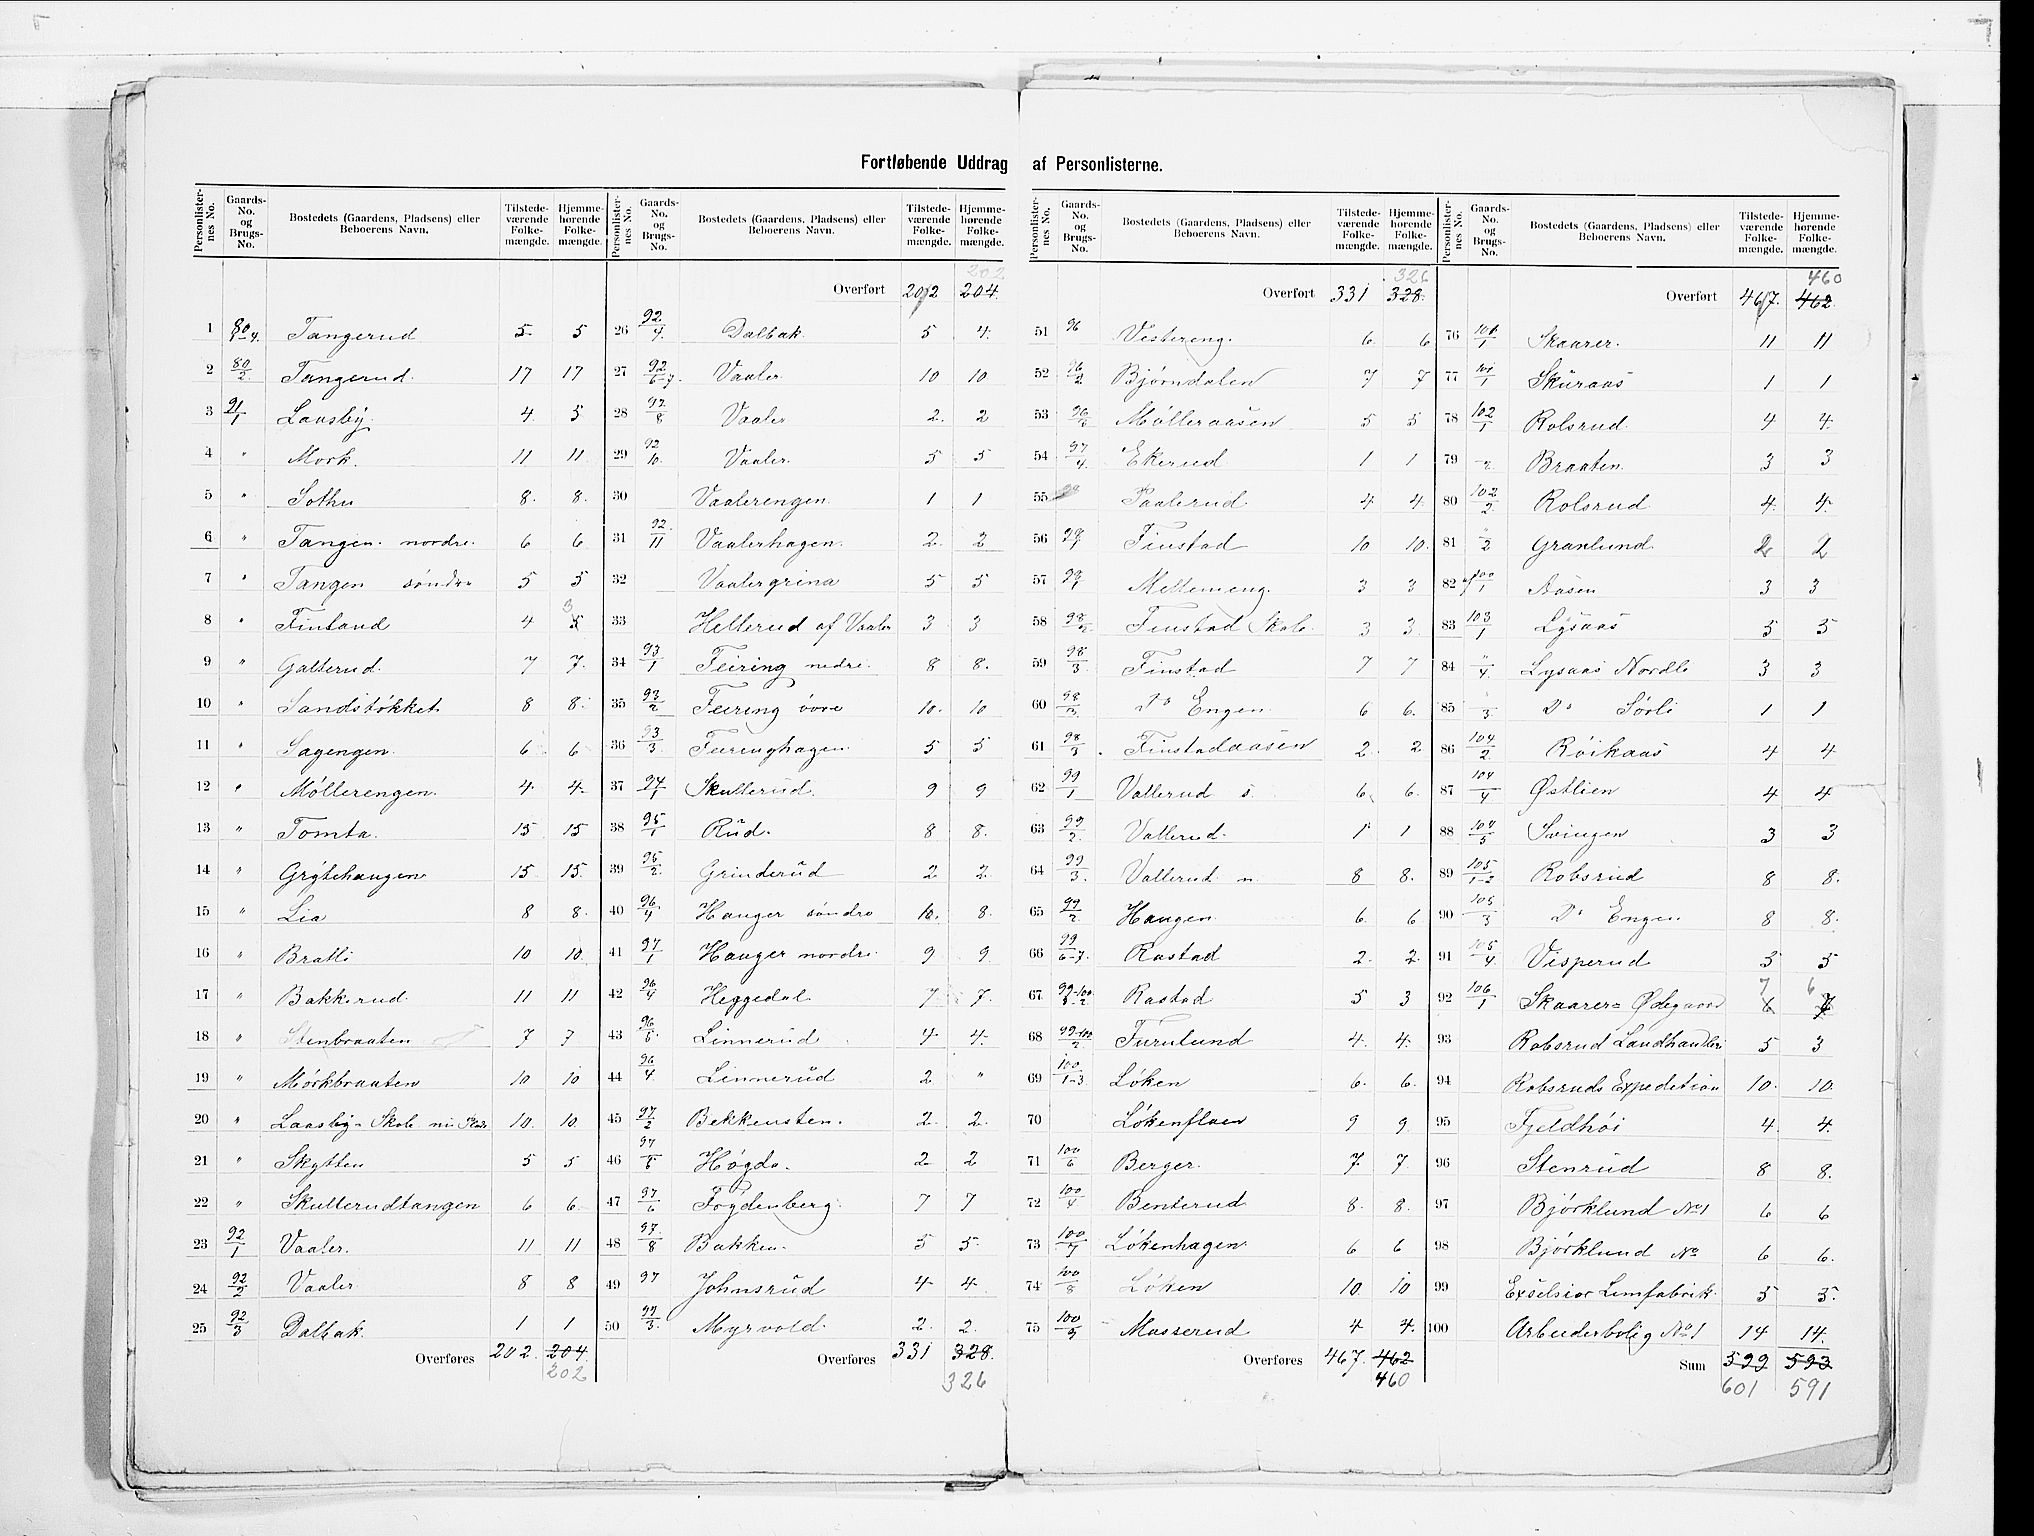 Fortløbende Uddrag af Personlisterne.
Personlister-nes No. | Gaards-No. og Brugs-No. | Bostedets (Gaardens, Pladsens) eller Beboerens Navn. | Tilstede-værende Folke-mængde. | Hjemme-hørende Folke-mængde.
1 80/1-4. Tangerud 5 5
2 80/2 Tangerud. 17 17
3 91/1 Laasby. 4 5
4 " Mork. 11 11
5 " Sothu 8. 8.
6 " Tangen nordre. 6 6
7 " Tangen søndre 5 5
8 " Finland 4 5 3
9 " Galterud. 7 7.
10 " Sandstökket 8 8.
11 " Sagengen. 6. 6
12 " Möllerengen. 4 4
13 " Tomta. 15 15
14 " Grytehaugen 15 15.
15 " Lia 8 8.
16 " Bratli 10 10.
17 " Bakkerud. 11 11
18 " Stenbraaten 7 7
19 " Mörkbraaten 10 10
20 " Laasby- Skole 10. 10.
21 " Skytten 5 5
22 " Skullerudtangen 6 6.
23 92/1 Vaaler. 11 11
24 92/2 Vaaler 8 8
25 92/3 Dalbak. 1 1
Overføres 202. 204. 202
Personlister-nes No. | Gaards-No. og Brugs-No. | Bostedets (Gaardens, Pladsens) eller Beboerens Navn. | Tilstede-værende Folke-mængde. | Hjemme-hørende Folke-mængde.
202
Overført 202 204.
26 92/4 Dalbak. 5 4.
27 92/6-7. Vaaler 10 10
28 92/8 Vaaler 2. 2
29 92/10. Vaaler. 5 5
30 Vaalerengen. 1 1
31 92/11 Vaalerhagen. 2. 2
32 Vaalergrina 5 5
33 Hellerud af Vaaler 3 3
34 93/1 Feiring nedre. 8 8.
35 93/2 Feiring övre 10. 10
36 93/3. Feiringhagen 5 5
37 94/1 Skullerud. 9 9
38 95/1 Rüd. 8 8.
39 95/2. Grinderüd 2 2.
40 96/4 Hauger søndre 10. 8.
41 97/1 Hauger nordre. 9 9.
42 96/4 Heggedal 7 7.
43 96/5. Linnerüd 4 4.
44 96/4 Linnerüd 2. "
45 97/2 Bekkensten. 2. 2.
46 97/5 Høgda. 2 2
47 97/6 Fogdenberg. 7 7
48 97/8 Bakken. 5 5.
49 97 Johnsrüd 4 4.
50 Myrvold. 2. 2.
Overføres 331 328. 326
Personlister-nes No. | Gaards-No. og Brugs-No. | Bostedets (Gaardens, Pladsens) eller Beboerens Navn. | Tilstede-værende Folke-mængde. | Hjemme-hørende Folke-mængde.
326
Overført 331 328.
51 96 Vestereng. 6. 6
52 96/2 Bjørndalen 7 7
53 Mölleraasen 5 5
54 97/4. Ekerud 1 1
55 Paalerud 4 4
56 Finstad 10 10.
57 98/1 Mellemeng. 3 3
58 Finstad Skole. 3 3.
59 98/3 Finstad 7 7
60 Do Engen 6 6.
61 98/3 Finstadaasen 2. 2
62 99/1 Vallerud s. 6 6.
63 99/2. Vallerud. 1 1
64 99/3. Vallerud n. 8 8.
65 99/2. Haugen 6. 6
66 99/6-7. Rastad 2. 2
67 Rastad 5 3
68 Furulund 4. 4.
69 100/1-3 Løken 6. 6.
70 Løkenflaen 9 9
71 100/6 Berger. 7. 7
72 100/4 Benterud 8. 8.
73 100/7 Løkenhagen 6 6
74 100/8 Løken 10. 10
75 Masserud 4 4.
Overføres 467. 462 460
Personlister-nes No. | Gaards-No. og Brugs-No. | Bostedets (Gaardens, Pladsens) eller Beboerens Navn. | Tilstede-værende Folke-mængde. | Hjemme-hørende Folke-mængde.
460
Overført 467. 462
76 101/1 Skaarer. 11 11
77 101/1 Skuraas 1 1
78 102/1 Rolsrud. 4 4.
79 Braaten. 3 3
80 102/2 Rolsrud 4. 4.
81 "/2 Granlund. 2 2
82 100/1 Aasen 3 3
83 103/1 Lysaas 5 5
84 "/4. Lysaas Nordli 3 3
85 "/3 Do Sørli 1 1
86 104/2 Röikaas 4 4
87 104/4 Østlien 4 4
88 104/5 Svingen 3 3
89 105/1-2 Robsrud 8 8.
90 105/3 Do Engen 8 8.
91 105/4. Visperud 5 5
92 106/1 Skaarer= Ødegaard 6 7 7 6
93 Robsrud Landhandleri 5 3
94 Robsruds Expedition 10. 10.
95 Fjeldhöi 4. 4.
96 Stenrüd 8 8.
97 Björklund No 1 6 6
98 Björklund No 6 6.
99 Exselsior Limfabrik. 5 5.
100 Arbeiderbolig No 1 14 14.
Sum 599 593
601 591